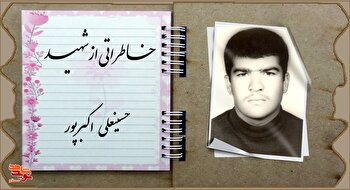 خاطراتی از شهید
حسینعلی اکبرپور